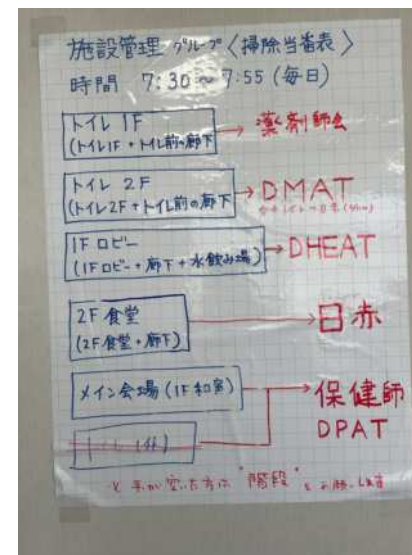 施設管理グループ〈掃除当番表〉
時間 7:30〜7:55(毎日)
トイレ 1F
(トイレ1F+トイレ前の廊下
→ 薬剤師会
トイレ 2F
(トイレ2F+トイレ前の廊下
→ DMAT
1F ロビー
(1Fロビー+廊下+水飲み場)
→ DHEAT
2F 食堂
(2F食堂+廊下)
→ 日赤
メイン会場(1F和室)
→ 保健師
DPAT
トイレ(外)
手が空いた方は "階段" をお願いします